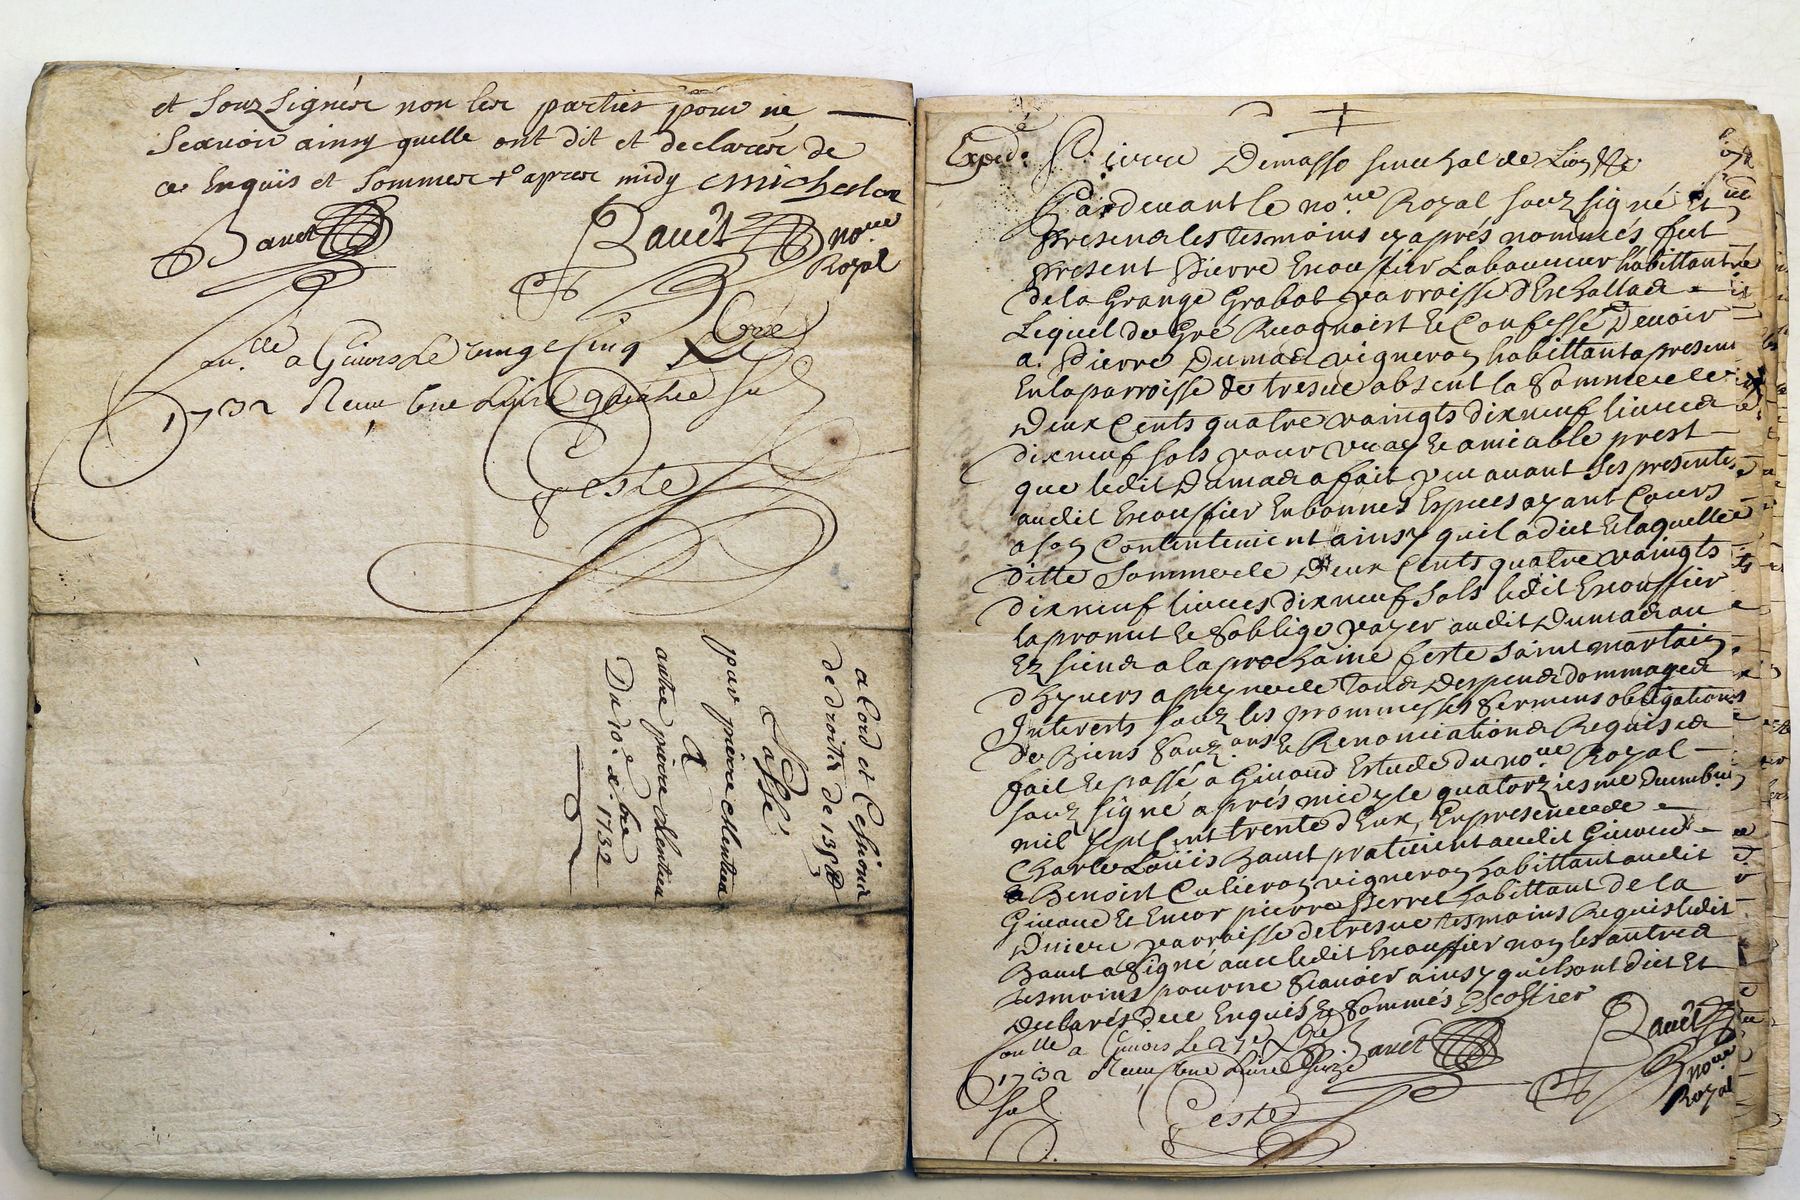 et Souz Signéz non lez parties pour ne
Scavoir ainsy quelle ont dit et declarez de
ce Enquis et Sommez + apres midy michel
Bauet
Bauet no.re
Royal
on.lle a Givors Le vingt Cinq Xbre
1732 Receu Une Livre quatre Sol
Ceste
acord et Cession
de droits de 135 lt
Passé
par pierre
A
autre pierre
Du 20e Xbre 1732
Exped.é Pierre Demasso seneschal de Lion &c
Pardevant le no.re Royal souz signé Et
presence les tesmoins cy aprés nommés fut
present Pierre Escouffier Laboureur habittant
de la Grange parroisse d'Eschallas
Lequel de Gré Recognoist Et Confesse Devoir
a Pierre Dumas vigneron habittant a present
En la parroisse de tresue absent la Somme de
Deux Cents quatre vaingts dix neuf livres
dix neuf sols pour vray Et amiable prest
que ledit Dumas a fait avant Ses presentes
audit Escouffier En bonnes Especes ayant Cours
a son Contentement ainsy quil a dict Et laquelle
ditte Somme de Deux Cents quatre vaingts
dix neuf livres dix neuf Sols ledit Escouffier
la promit Et S'oblige payer audit Dumas ou
Es siens a la prochaine feste Saint martain
d'hyvers a peyne de tous Despens dommages
Interests Souz les prommesses Serments obligations
de Biens Souz.ons & Renonciations Requises
fait Et passé a Givord Estude du no.re Royal
souz signé aprés midy le quatorziesme Decembre
mil sept Cent trente d'Eux, En presence de
Charle Loüis Bauet praticient audit Givord
& Benoist Culieron vigneron habittant audit
Givord Et Encor pierre Perret habittant de la
parroisse de tresue tesmoins Requis ledit
Bauet a Signé avec ledit Escouffier non les autres
tesmoins pour ne Scavoir ainsy quils ont dict Et
declarés de ce Enquis & Sommés Escoffier
on lle a Givors Le 27e Xbre Bauet
Bauet
no.re
Royal
1732 Receu Une Livre
Sol
Ceste